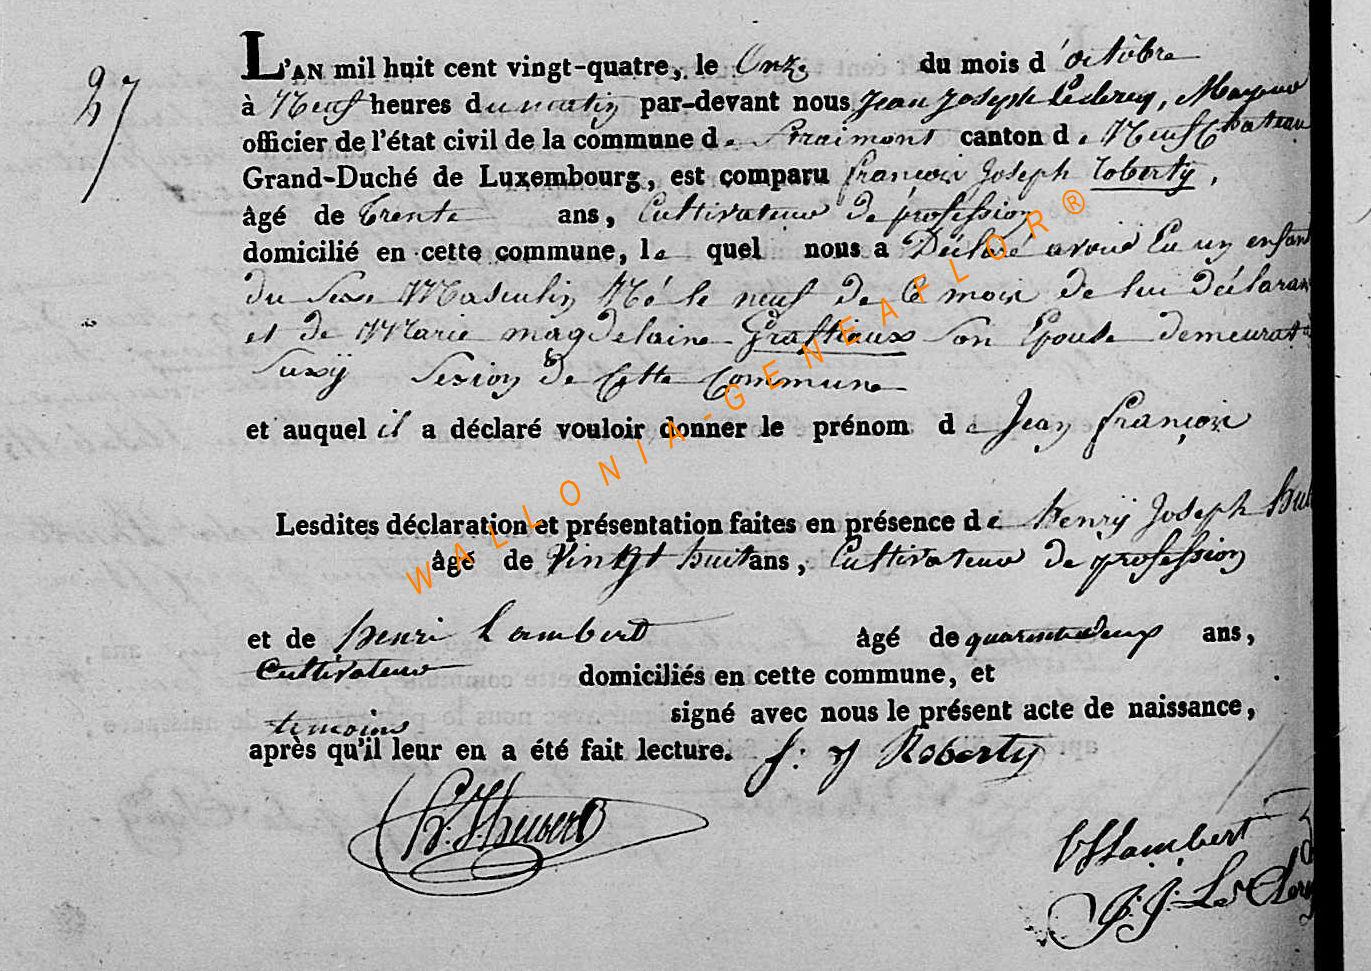 27
L'AN mil huit cent vingt-quatre, le Onze du mois d'octobre
à Neuf heures du matin par-devant nous Jean Joseph Leclercq, Mayeur
officier de l'état civil de la commune de Straimont canton de Neufchateau
Grand-Duché de Luxembourg, est comparu françois Joseph Roberty,
âgé de Trente ans, Cultivateur de profession
domicilié en cette commune, le quel nous a Déclaré avoir Eu un enfant
du Sexe Masculin Né le neuf de Ce mois de lui déclarant
et de Marie magdelaine Graftiaux Son Epouse demeurant à
Suxÿ Sexion de Cette Commune
et auquel il a déclaré vouloir donner le prénom de Jean françois
Lesdites déclaration et présentation faites en présence de Henrÿ Joseph
âgé de Vingt huit ans, Cultivateur de profession
et de henri Lambert âgé de quarante deux ans,
Cultivateur domiciliés en cette commune, et
témoins signé avec nous le présent acte de naissance,
après qu'il leur en a été fait lecture. f: j Roberty
h. J. hubert
Lambert
J: J: Le Clercq
WALLONIA-GENEAFLOR®